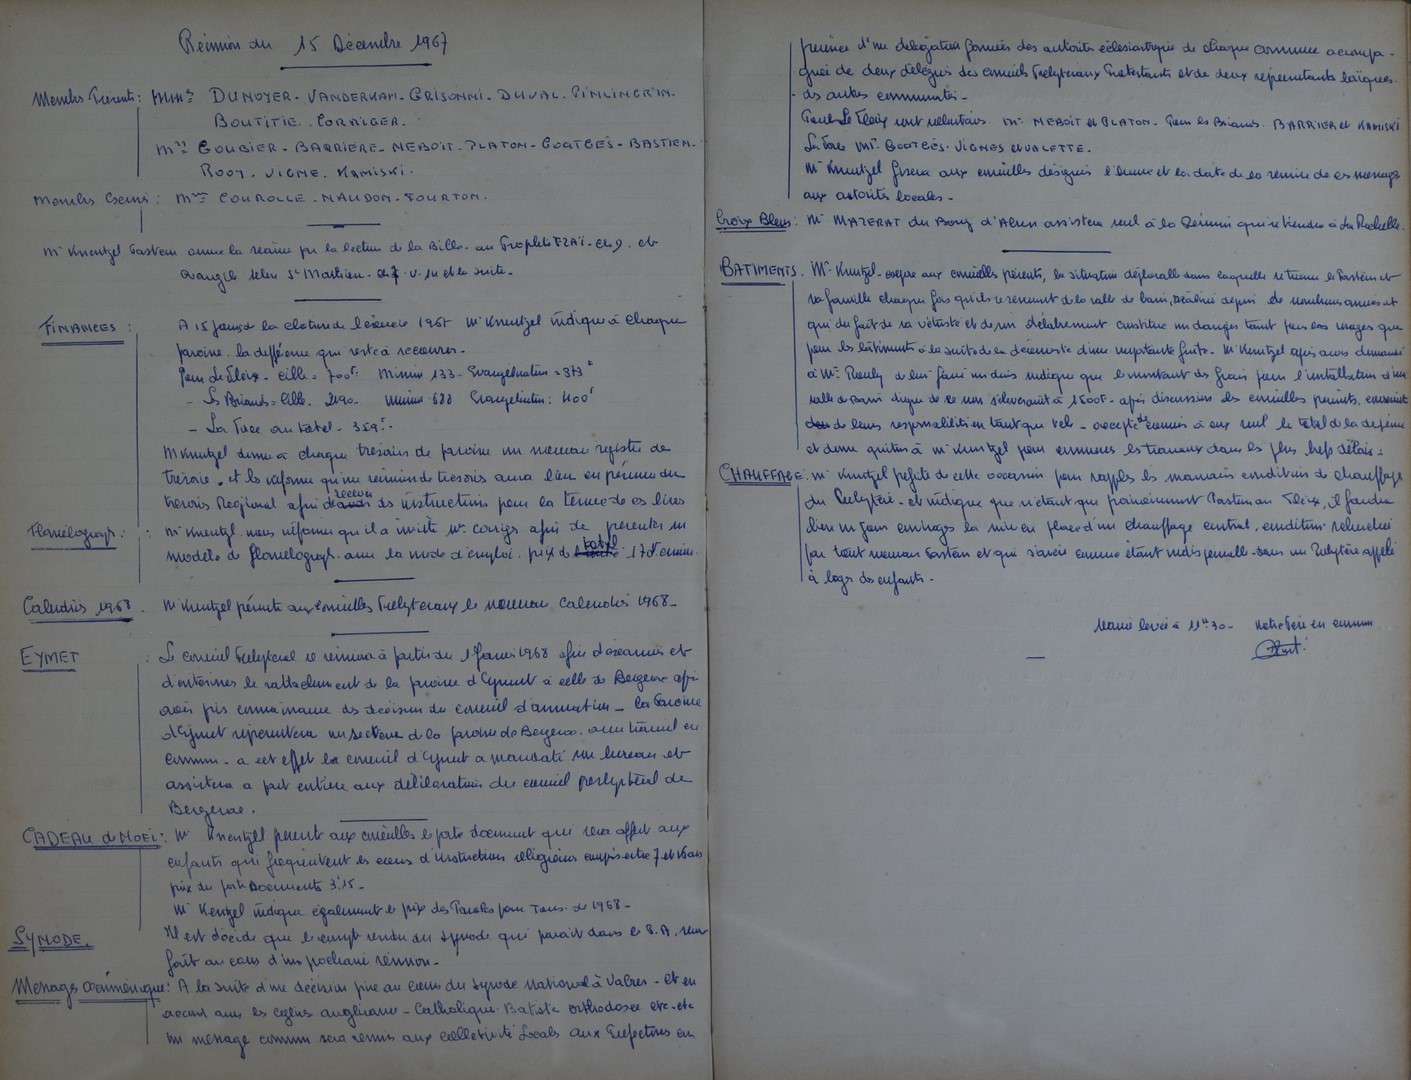 Réunion du 15 Décembre 1967
Membres Présents : Mmes DUNOYER - VANDERKAM - GRISONNI - DUVAL - PINLINGRIN.
BOUTITIE - CORAIGER.
Mrs GOUBIER - BARRIERE - NEBOIT - PLATON - GOATGÈS - BASTIEN.
ROOY - VIGNE - KAMISKI.
Membres Excusés : Mmes COUROLLE - NAUDON - TOURTON.
Mr Kneutzel Pasteur ouvre la séance par la lecture de la Bible. au Prophète ESAÏ - Ch 9. et
Evangile selon St Mathieu - et la suite -
FINANCES :
A 15 jours de la cloture de l'exercice 1967 Mr Kneutzel indique à chaque
paroisse. la différence qui reste à recouvrer -
Pour Le Fleix - Cible = 700f Mission 133 - Evangélisation = 373f
- Les Briands - Cible. 2190 - Mission 688 Evangélisation : 400f
- La Force au total - 359f -
Mr Kneutzel donne à chaque trésorier de paroisse un nouveau registre de
trésorie - et les informe qu'une réunion de trésoriers aura lieu en présence du
trésorier Régional afin de recevoir des instructions pour la tenue de ces livres
Flanélographe : Mr Kneutzel nous informe qu'il a invité Mr afin de présenter un
modèle de flanelographe avec la mode d'emploi. prix de total 170f environ
Calendriers 1968. Mr Kneutzel présente aux Conseillers Presbyteraux le nouveau Calendrier 1968 -
EYMET : Le Conseil Presbyteral se réunira à partir du 1er Janvier 1968 afin d'examiner et
d'entériner le rattachement de la paroisse d'Eymet à celle de Bergerac après
avoir pris connaissance des décisions du conseil d'annexation - la Paroisse
d'Eymet représentera un secteur de la paroisse de Bergerac. avec travail en
commun - a cet effet le conseil d'Eymet a mandaté un bureau et
assistera a part entière aux délibérations du conseil presbytéral de
Bergerac.
CADEAU de NOEL : Mr Kneutzel présente aux conseillers le porte document qui sera offert aux
enfants qui fréquentent les cours d'instructions religieuses compris entre 7 et 16 ans
prix du porte Documents 3f15 -
Mr Kentzel indique également le prix des Paroles pour Tous - de 1968 -
SYNODE. Il est décidé que le compte rendu du synode qui parait dans le S.A. sera
fait au cours d'une prochaine réunion -
Message Œcuménique : A la suite d'une décision prise au cours du Synode National à Vabres - et en
accord avec les églises anglicane - Catholique - Batiste orthodoxe etc - etc
un message commun sera remis aux collectivités locales aux Préfectures en
présence d'une délégation formée des autorités écclésiastiques de chaque commune accompa-
gnée de deux délégués des conseils Presbyteraux Protestants et de deux représentants laïques
des autres communautés -
Pour Le Fleix sont volontaires. Mr NEBOIT et PLATON - Pour les Briands. BARRIER et KAMISKI
La Force Mrs GOATGÈS - VIGNES et VALETTE.
Mr Kneutzel fixera aux conseillers désignés l'heure et la date de la remise de ces messages
aux autorités locales -
Croix Bleue : Mr MAZERAT du Bourg d'Abren assistera seul à la Réunion qui se tiendra à La Rochelle.
BATIMENTS. Mr Kneutzel - expose aux conseillers présents, la situation déplorable dans laquelle se trouve le Pasteur et
sa famille chaque fois qu'ils se servent de la salle de bain, réalisée depuis de nombreuses années et
qui du fait de sa vétusté et de son délabrement constitue un danger tant pour les usagers que
pour les bâtiments à la suite de la découverte d'une importante fuite - Mr Kneutzel après avoir demandé
à Mr Rouly de lui faire un devis indique que le montant des frais pour l'installation d'une
salle de bains digne de ce nom s'élèverait à 1500f - après discussion des conseillers présents, conscients
de leurs responsabilités en tant que tels - accepte de à eux seul le total de la dépense
et donne quitus à Mr Kneutzel pour commencer les travaux dans les plus brefs délais :
CHAUFFAGE : Mr Kneutzel profite de cette occasion pour rappeler les mauvaises conditions de chauffage
du Presbytère - et indique que n'étant que provisoirement Pasteur au Fleix, il faudra
bien un jour envisager la mise en place d'un chauffage central, condition
par tout nouveau Pasteur et qui s'avère comme étant indispensable - dans un Presbytère appelé
à loger des enfants -
Séance levée à 11h30 - Notre Père en commun